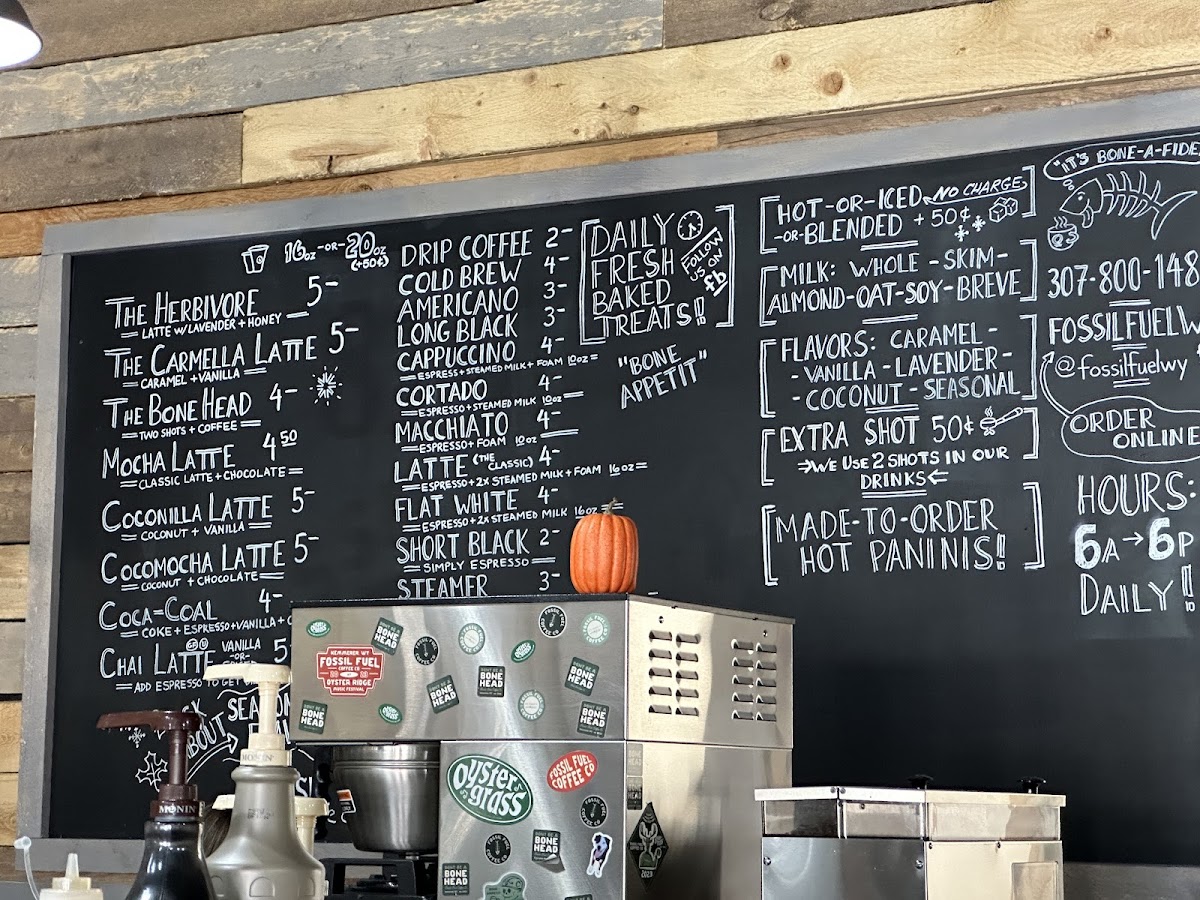 16oz -OR- 20oz
(+50¢)
THE HERBIVORE 5-
LATTE W/LAVENDER + HONEY
THE CARMELLA LATTE 5-
CARAMEL + VANILLA
THE BONE HEAD 4-
TWO SHOTS + COFFEE
MOCHA LATTE 4 50
CLASSIC LATTE + CHOCOLATE
COCONILLA LATTE 5-
COCONUT + VANILLA
COCOMOCHA LATTE 5-
COCONUT + CHOCOLATE
COCA=COAL 4-
COKE + ESPRESSO + VANILLA + C
CHAI LATTE VANILLA 5
-OR-
ADD ESPRESSO TO GET
ABOUT
DRIP COFFEE 2-
COLD BREW 4-
AMERICANO 3-
LONG BLACK 3-
CAPPUCCINO 4-
ESPRESS+STEAMED MILK + FOAM 10oz
CORTADO 4-
ESPRESSO + STEAMED MILK 10oz
MACCHIATO 4-
ESPRESSO + FOAM 10oz
LATTE (THE CLASSIC) 4-
ESPRESSO + 2X STEAMED MILK + FOAM 16oz
FLAT WHITE 4-
ESPRESSO + 2X STEAMED MILK 16oz
SHORT BLACK 2-
SIMPLY ESPRESSO
STEAMER 3-
DAILY
FRESH
BAKED
TREATS!
FOLLOW
US ON
fb
"BONE
APPETIT"
HOT-OR-ICED NO CHARGE
-OR-BLENDED +50¢
MILK: WHOLE -SKIM-
ALMOND-OAT-SOY-BREVE
FLAVORS: CARAMEL -
- VANILLA - LAVENDER -
- COCONUT - SEASONAL
EXTRA SHOT 50¢
→WE USE 2 SHOTS IN OUR
DRINKS←
MADE-TO-ORDER
HOT PANINIS!
"IT'S BONE-A-FIDE
307-800-148
FOSSILFUELW
@fossilfuelwy
ORDER
ONLINE
HOURS:
6A→6P
DAILY!
KEMMERER WY
FOSSIL FUEL
COFFEE CO
OYSTER RIDGE
MUSIC FESTIVAL
BONE
HEAD
BONE
HEAD
BONE
HEAD
BONE
HEAD
BONE
HEAD
BONE
HEAD
Oyster
grass
FOSSIL FUEL
COFFEE CO
BONE
HEAD
BONE
HEAD
MONIN
MONIN